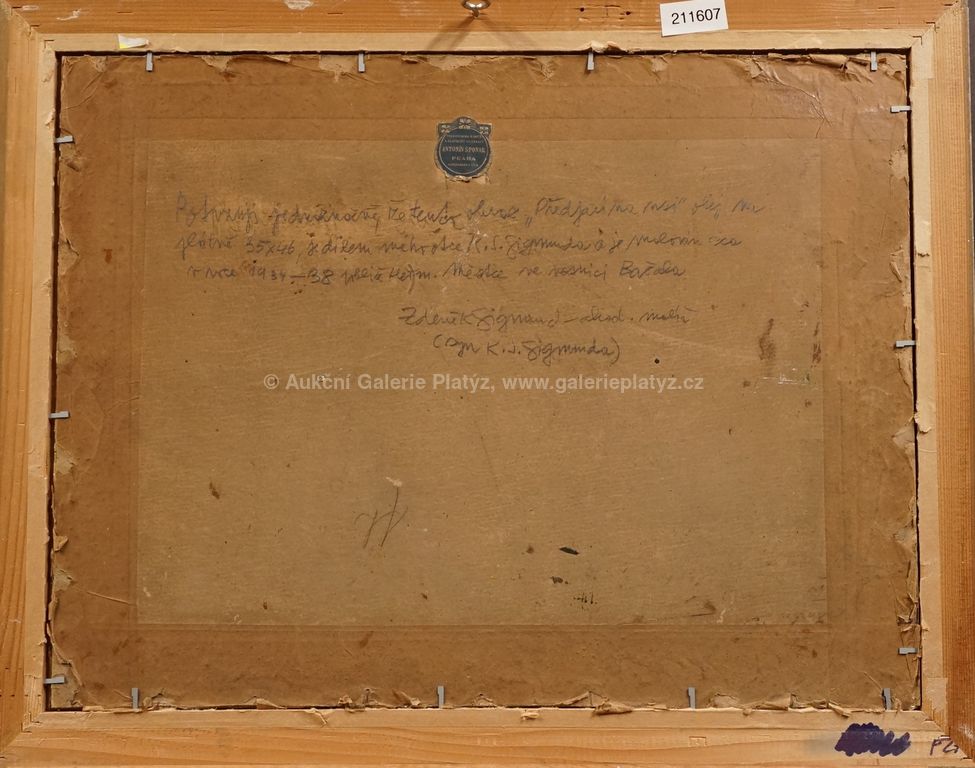 211607
ANTONÍN ŠPONAR
PRAHA
Potvrzuji že tento obraz „Předjaří na vsi" olej na
plátně 35x46, je dílem mého otce K. J. Sigmunda a je malován
v roce 1934–38 Městce ve vesnici
Zdeněk Sigmund – akad. malíř
(syn K. J. Sigmunda)
© Aukční Galerie Platýz, www.galerieplatyz.cz